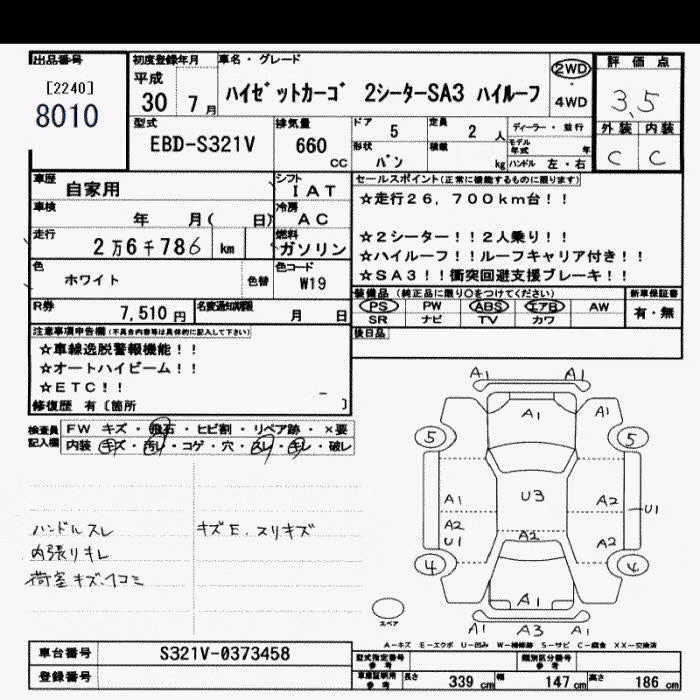 出品番号
[2240]
8010
初度登録年月
平成
30 7 月
車名・グレード
ハイゼットカーゴ 2シーターSA3 ハイルーフ
2WD
・
4WD
評価点
3.5
外装 内装
C C
型式
EBD-S321V
排気量
660
CC
ドア
5
定員
2 人
ディーラー・並行
形状
バン
積載
kg
モデル年式 年
ハンドル 左・右
車歴
自家用
シフト
IAT
車検
年 月( 日)
冷房
AC
走行
2万6千786 km
燃料
ガソリン
色
ホワイト
色替
色コード
W19
R券
7,510 円
名変通知期限
月 日
セールスポイント(正常に機能するものに限ります)
☆走行26,700km台!!
☆2シーター!!2人乗り!!
☆ハイルーフ!!ルーフキャリア付き!!
☆SA3!!衝突回避支援ブレーキ!!
装備品(純正品に限り○をつけてください)
PS PW ABS エアB AW
SR ナビ TV カワ
新車保証書
有・無
後日品
注意事項申告欄(不具合内容等は具体的に記入して下さい)
☆車線逸脱警報機能!!
☆オートハイビーム!!
☆ETC!!
修復歴 有〔箇所 〕
検査員
記入欄
FW キズ・飛石・ヒビ割・リペア跡・×要
内装 キズ・汚レ・コゲ・穴・スレ・キレ・破レ
ハンドルスレ
内張りキレ
荷室キズ・凹コミ
キズE、スリキズ
A1 A1
A1 A1
5 5
A1 U3 A2
U1
A2 A2 A2
U1
4 4
A1
A1 A3 A1
スペア
A-キズ E-エクボ U-凹み W-補修跡 S-サビ C-腐食 XX-交換済
車台番号
S321V-0373458
登録番号
型式指定番号
参考
類別区分番号
参考
車庫証明用
参考
長さ 339 cm 幅 147 cm 高さ 186 cm